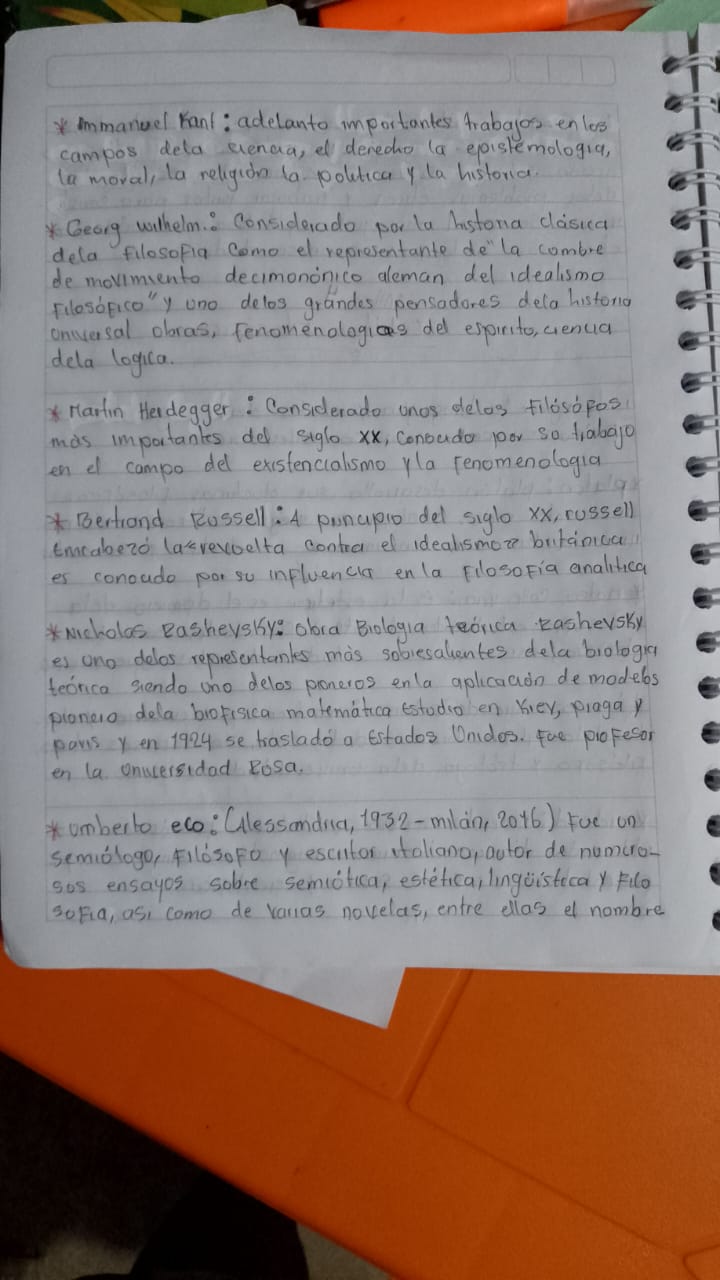 * Immanuel Kant: adelanto importantes trabajos en los
campos dela ciencia, el derecho la epistemologia,
la moral, la religión la politica y la historia.
* Georg wilhelm.: Considerado por la historia clásica
dela filosofia como el representante de "la combre
de movimiento decimonónico aleman del idealismo
Filosófico" y uno delos grandes pensadores dela historia
universal obras, fenomenologicas del espirito, ciencia
dela logica.
* Martin Heidegger: Considerado unos delos filósófos
más importantes del siglo xx, conocido por so trabajo
en el campo del existencialismo y la fenomenologia
* Bertrand Russell: A principio del siglo xx, russell
Encabezó la revoelta contra el idealismo británica
es conocido por su influencia en la Filosofía analitica
* Nicholas Rashevsky: obra Biologia teórica Rashevsky
es uno delos representantes más sobresalientes dela biologia
teórica siendo uno delos pioneros en la aplicación de modelos
pionero dela biofisica matemática Estudio en Kiev, praga y
paris y en 1924 se traslado a Estados Unidos. Fue profesor
en la Universidad Rosa.
* umberto eco: (Alessandria, 1932-milán, 2016) Fue un
semiólogo, Filósofo y escritor italiano, autor de numero-
sos ensayos sobre semiótica, estética, lingüistica y Filo
sofia, asi como de varias novelas, entre ellas el nombre